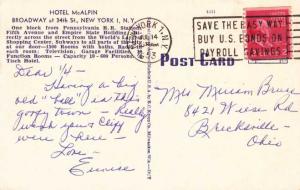 HOTEL McALPIN
BROADWAY at 34th St., NEW YORK 1, N.Y.
One block from Pennsylvania R.R. Station
Fifth Avenue and Empire State Building
the street from the World's Largest
Shopping Center. Subways to all parts of town
at our door—1500 Rooms with baths,
each with Television. Garage Facilities.
Function Rooms — Capacity 10-600 persons.
Tisch Hotel.
NEW YORK, N.Y.
JUL 14
SAVE THE EASY WAY
BUY U.S. BONDS ON
PAYROLL SAVINGS
POST CARD
Dear
Having a big
old "ball" in this
goofy town — Really
wish you Cliff
were here —
Love
Eunice
Mrs Miriam Bruce
8421 Wiese Rd
Brecksville -
Ohio